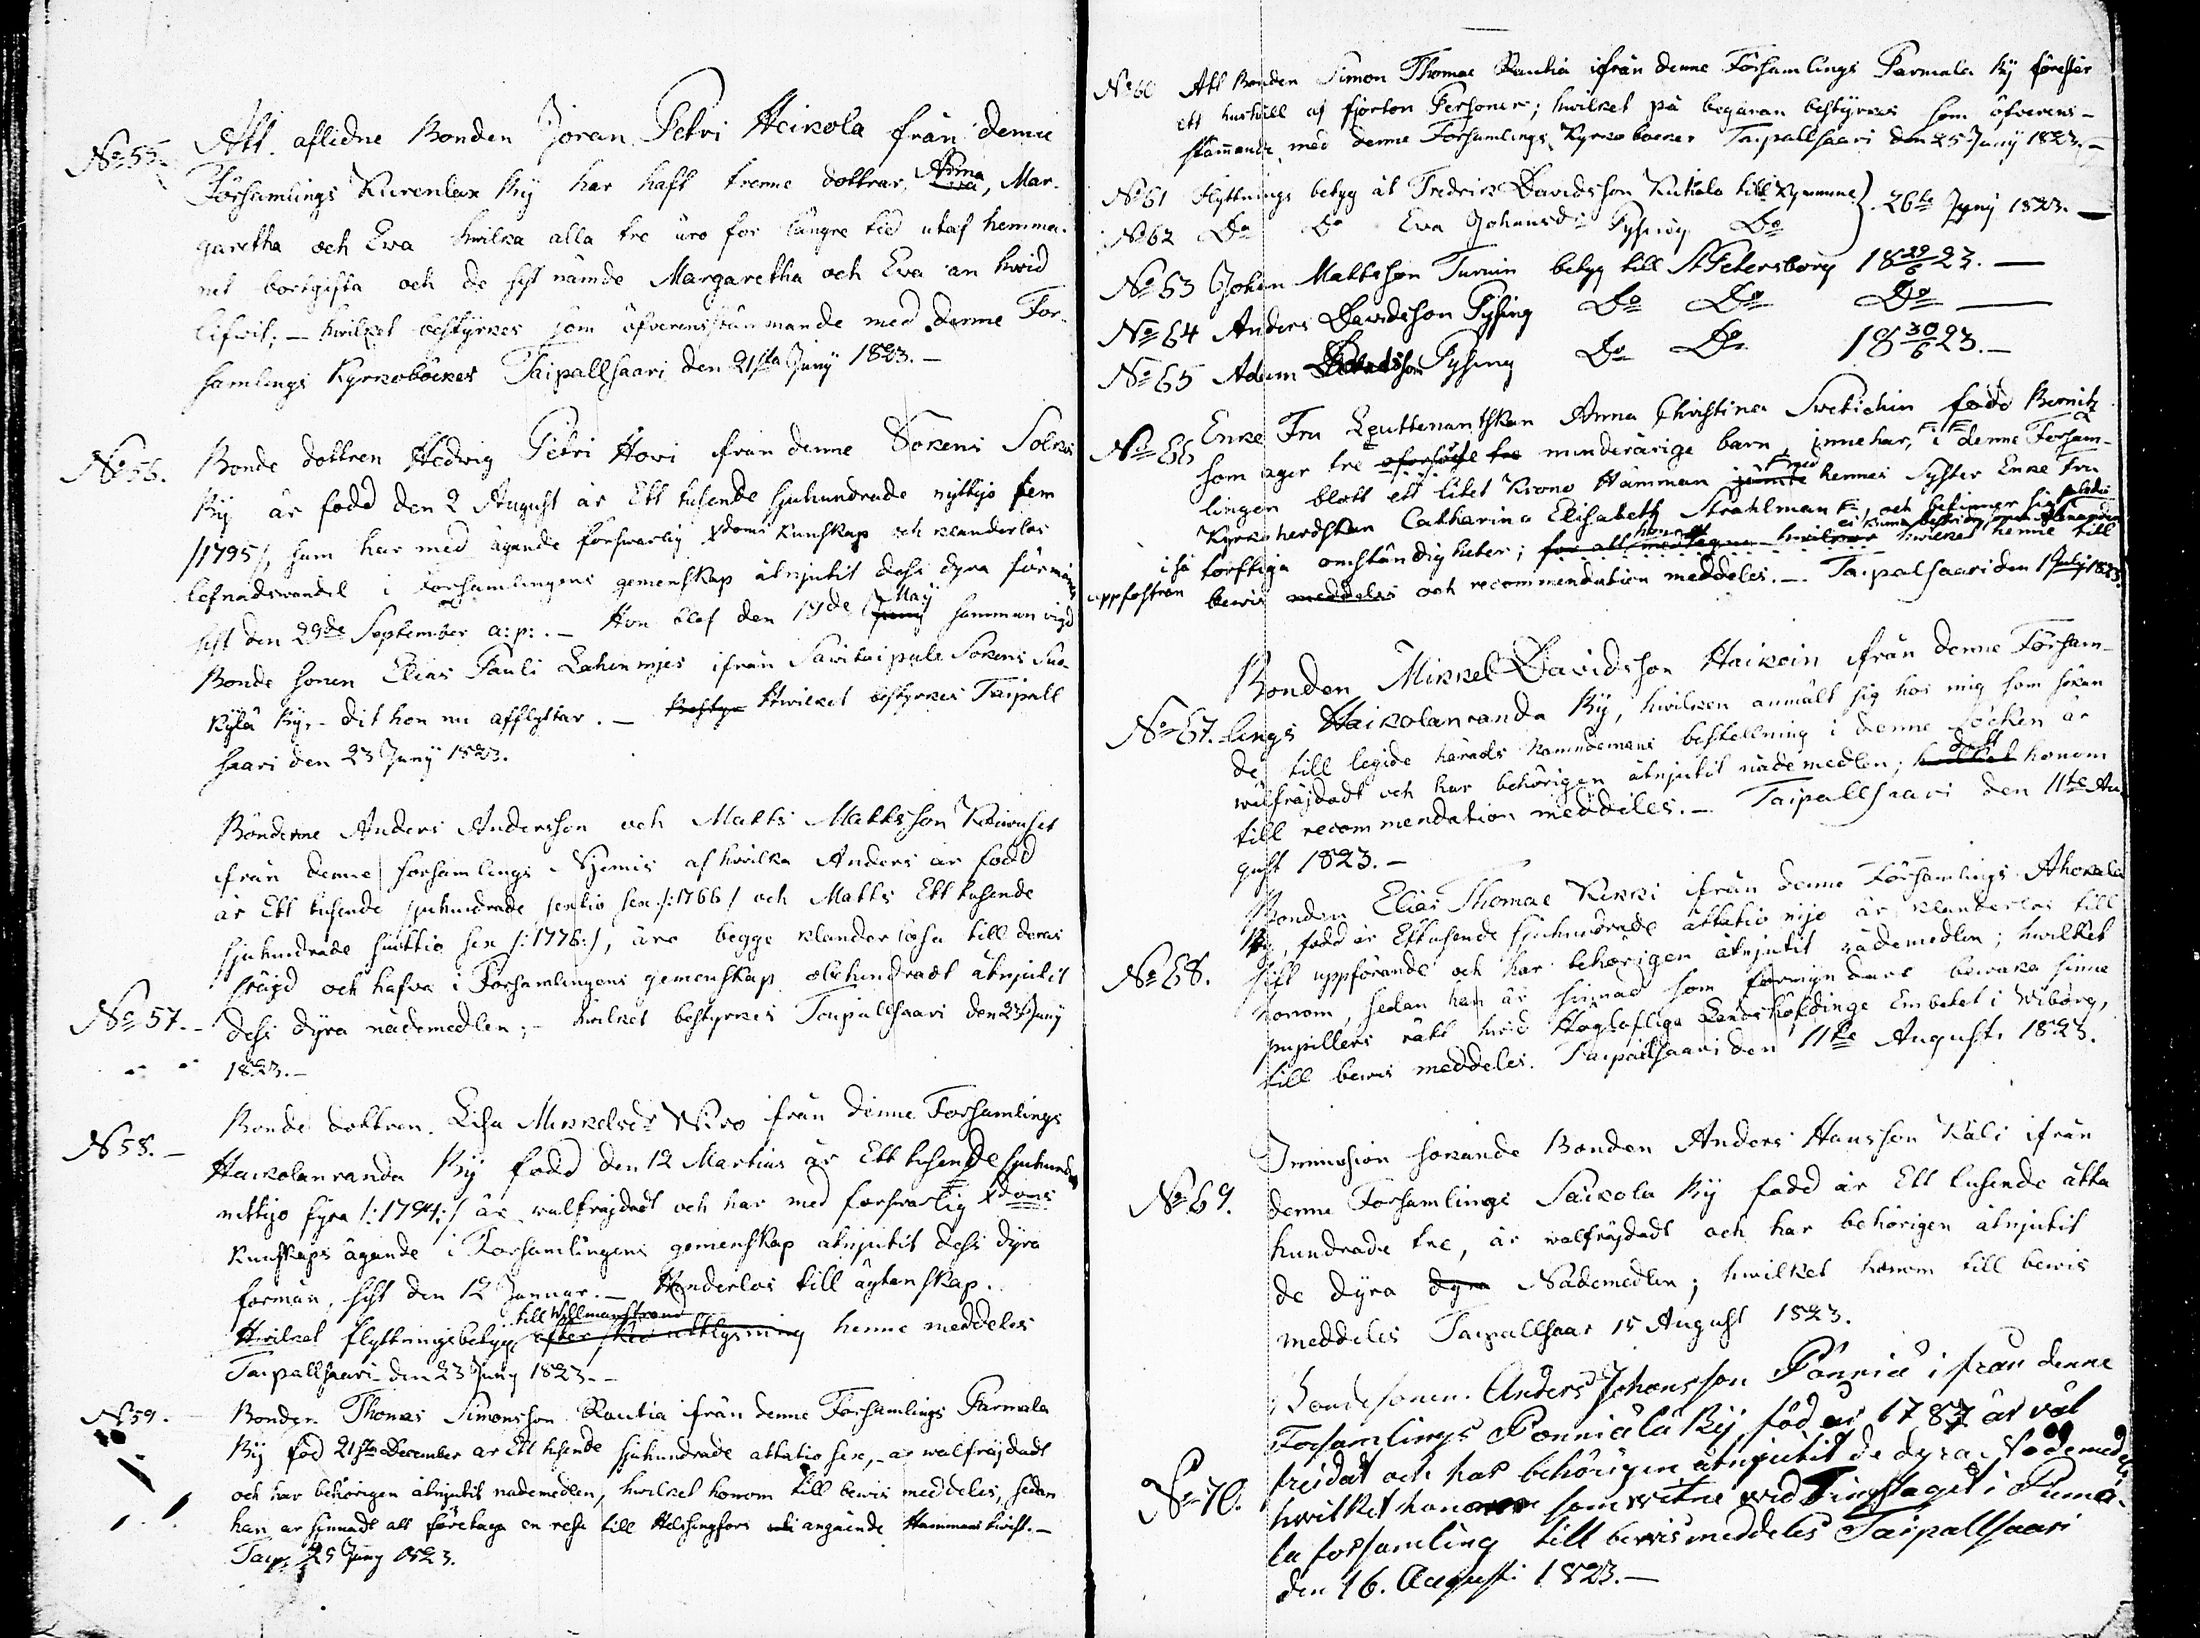 No 55. Att aflidne Bonden Jöran Petri Heikola från denne
Församlings Kurenlax By har haft trenne döttrar, Anna, Mar-
garetha och Eva hvilka alla tre äro för längre tid utaf hemma-
net bortgifta och de sist nämde Margaretha och Eva än hvid
lifvit; — hvilket bestyrkes som öfverensstämmande med denne För-
samlings Kyrkoböcker Taipallsaari den 21sta Juny 1823. —
No 56. Bonde dottren Hedvig Petri Hovi från denne Sokens Solkis
By är född den 2 August år Ett tusende sjuhundrade nyttjo fem
/1795/, som har med ägande försvarlig Xdoms kunskap och klanderlös
lefnadsvandel i Församlingens gemenskap åtnjutit dess dyra förmån
sist den 29de September a: p: . — Hon blef den 19de May Juny samman vigd
Bonde sonen Elias Pauli Lahenmies ifrån Savitaipale Sokens Suo-
kylä By, - dit hon nu afflyttar. — Bestyr Hvilket bestyrkes Taipall
saari den 23 Juny 1823.
Bönderne Anders Andersson och Matts Mattsson
ifrån denne församlings Njemis af hvilka Anders är född
år Ett tusende sjuhundrade sextio sex /:1766/ och Matts Ett tusende
sjuhundrade sjuttio sex /:1776:/, äro begge klanderlösa till deras
fräjd och hafva i Församlingens gemenskap obehindradt åtnjutit
No 57. — dess dyra nådemedlen; — hvilket bestyrkes Taipallsaari den 23 Juny
1823. —
No 58. — Bonde dottren Lisa Mikkelsdr Wiro ifrån denne Församlings
Haikolanranda By född den 12 Martius år Ett tusende sjuhundra
nittijo fyra /:1794:/ är välfräjdadt och har med försvarlig Xdoms
kunskaps ägande i Församlingens gemenskap åtnjutit dess dyra
förmån, sist den 12 Januar. — Hinderlös till ägtenskap.
till Willmanstrand
Hvilket flyttningsbetyg efter sked utlysning henne meddeles
Taipallsaari den 23 Juny 1823. —
No 59. Bonden Thomas Simonsson Rautia ifrån denne Församlings Parmala
By föd 21sta December år Ett tusende sjuhundrade åttatio sex, — är välfräjdadt
och har behörigen åtnjutit nådemedlen, hvilket honom till bevis meddeles, sedan
han är sinnadt att företaga en resa till Helsingfors angående Hemmans tvist. —
Taip. 25 Juny 1823.
No 60 Att Bonden Simon Thomae Rautia ifrån denne Församlings Parmala By förestår
ett hushåll af fjorton Personer; hvilket på begäran bestyrkes som öfverens-
stämmande med denne Församlings Kyrkoböcker Taipallsaari den 25 Juny 1823. —
No 61 Flyttnings betyg åt Fredrik Davidsson Kukala till Kymmene } 26te Juny 1823. —
No 62 Do Do Eva Johansdr Pysing Do
No 63 Johan Mattsson Turuin betyg till St Petersborg 18 29/6 23. —
No 64 Anders Davidsson Pysing Do Do Do —
No 65 Adam Davidsson Pysing Do Do 18 30/6 23. —
No 66 Enke Fru Leuttenantskan Anna Christina Svetichin född Bernitz
som äger tre oförsörje tre minderårige barn, innehar, i denne Försam-
lingen blott ett litet Krono Hemman jämte med hennes Syster Enke Fru
Kyrkoherdskan Catharina Elisabeth Strahlman, och befinner sig
i så torftiga omständigheter; hvilket henne till
uppfostran bevis meddeles och recommendation meddeles. — Taipalsaari den 1 July 1823.
Bonden Mikkel Davidsson Haikoin ifrån denne Försam-
No 67. lings Haikolanranda By, hvilken anmält sig hos mig som sökan
de till legide härads namndemans bestellning i denne Socken är
välfräjdadt och har behörigen åtnjutit nådemedlen; hvilket detta honom
till recommendation meddeles. — Taipallsaari den 11te Au-
gust 1823. —
Bonden Elias Thomae Kukki ifrån denne Församlings Ahokala
By, född år Ettusende sjuhundrade åttatio nijo är klanderlös till
No 68. sitt uppförande och har behörigen åtnjutit nådemedlen; hvilket
honom, sedan han är sinnad som förmyndare bevaka sinne
pupillers rätt hvid Höglofliga Landshöfdinge Embetet i Wiborg,
till bevis meddeles. Taipallsaari den 11te Augusti 1823.
Immission sökande Bonden Anders Hansson Käli ifrån
No 69. denne Församlings Saikola By född år Ett tusende åtta
hundrade tre, är välfräjdadt och har behörigen åtnjutit
de dyra dyra Nådemedlen; hvilket honom till bevis
meddeles Taipallsaar 15 August 1823.
Bondesonen Anders Johansson Pönniä ifrån denne
Församlings Pönniälä By, föd år 1787 är väl
freidat och har behörigen åtnjutit de dyra Nådemedel
No 70. hvilket honom som vitne vid Tingstaget i Puma-
la församling till bevis meddeles Taipallsaari
den 16. Augusti 1823. —